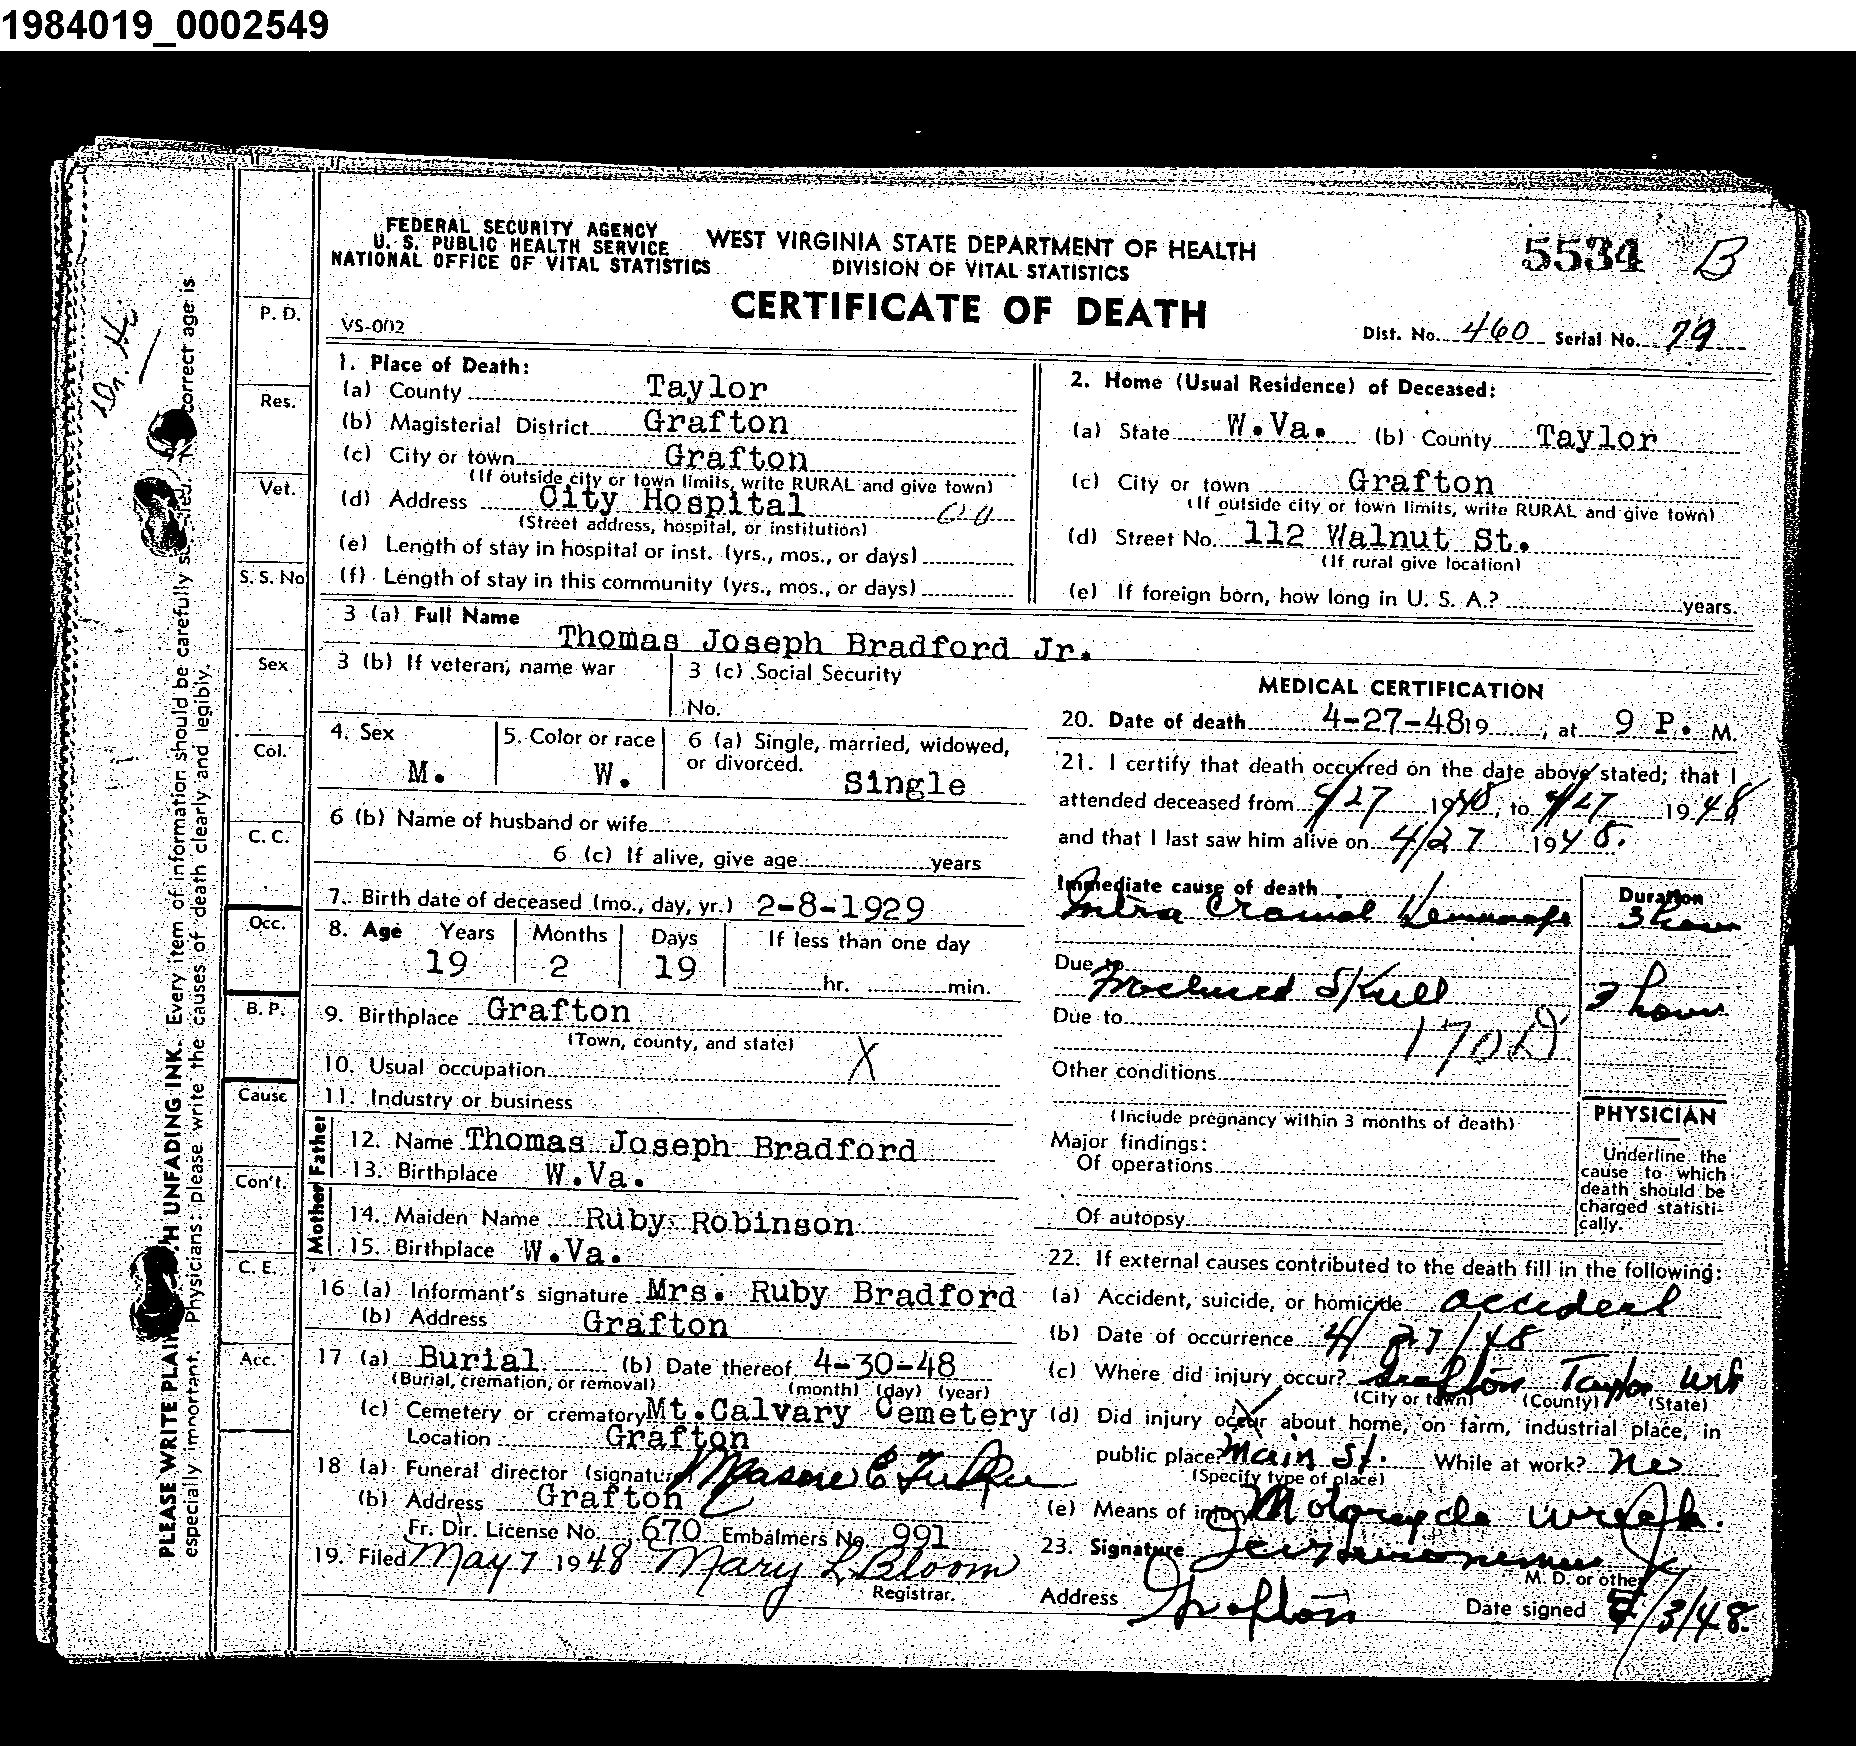 1984019_0002549
FEDERAL SECURITY AGENCY
U. S. PUBLIC HEALTH SERVICE
NATIONAL OFFICE OF VITAL STATISTICS
WEST VIRGINIA STATE DEPARTMENT OF HEALTH
DIVISION OF VITAL STATISTICS
5534 B
CERTIFICATE OF DEATH
VS-002
Dist. No. 460 Serial No. 79
1. Place of Death:
(a) County Taylor
(b) Magisterial District Grafton
(c) City or town Grafton
(If outside city or town limits, write RURAL and give town)
(d) Address City Hospital
(Street address, hospital, or institution)
(e) Length of stay in hospital or inst. (yrs., mos., or days)
(f) Length of stay in this community (yrs., mos., or days)
2. Home (Usual Residence) of Deceased:
(a) State W.Va. (b) County Taylor
(c) City or town Grafton
(If outside city or town limits, write RURAL and give town)
(d) Street No. 112 Walnut St.
(If rural give location)
(e) If foreign born, how long in U. S. A.? years.
3 (a) Full Name
Thomas Joseph Bradford Jr.
3 (b) If veteran, name war
3 (c) Social Security
No.
4. Sex
M.
5. Color or race
W.
6 (a) Single, married, widowed,
or divorced.
Single
6 (b) Name of husband or wife
6 (c) If alive, give age years
7. Birth date of deceased (mo., day, yr.) 2-8-1929
8. Age Years Months Days If less than one day
19 2 19 hr. min.
9. Birthplace Grafton
(Town, county, and state)
10. Usual occupation X
11. Industry or business
Father
12. Name Thomas Joseph Bradford
13. Birthplace W.Va.
Mother
14. Maiden Name Ruby Robinson
15. Birthplace W.Va.
16 (a) Informant's signature Mrs. Ruby Bradford
(b) Address Grafton
17 (a) Burial (b) Date thereof 4-30-48
(Burial, cremation, or removal) (month) (day) (year)
(c) Cemetery or crematory Mt.Calvary Cemetery
Location Grafton
18 (a) Funeral director (signature)
(b) Address Grafton
Fr. Dir. License No. 670 Embalmers No. 991
19. Filed May 7 1948 Mary L Bloom
Registrar.
MEDICAL CERTIFICATION
20. Date of death 4-27-48 19 , at 9 P. M.
21. I certify that death occurred on the date above stated; that I
attended deceased from 4/27 1948, to 4/27 1948
and that I last saw him alive on 4/27 1948.
Immediate cause of death
Intra Cranial Hemorrage
Duration
3 hours
Due to
Fractured Skull
3 hours
Due to
170
Other conditions
(Include pregnancy within 3 months of death)
Major findings:
Of operations
Of autopsy
PHYSICIAN
Underline the
cause to which
death should be
charged statisti-
cally.
22. If external causes contributed to the death fill in the following:
(a) Accident, suicide, or homicide accident
(b) Date of occurrence 4/27/48
(c) Where did injury occur? Grafton Taylor WV
(City or town) (County) (State)
(d) Did injury occur about home, on farm, industrial place, in
public place? Main St. While at work? no
(Specify type of place)
(e) Means of injury Motorcycle wreck.
23. Signature
M. D. or other
Address Grafton Date signed 5/3/48.
P. D.
Res.
Vet.
S. S. No
Sex
Col.
C. C.
Occ.
B. P.
Cause
Con't.
C. E.
Acc.
PLEASE WRITE PLAIN H UNFADING INK. Every item of information should be carefully correct age is
especially important. Physicians: please write the causes of death clearly and legibly.